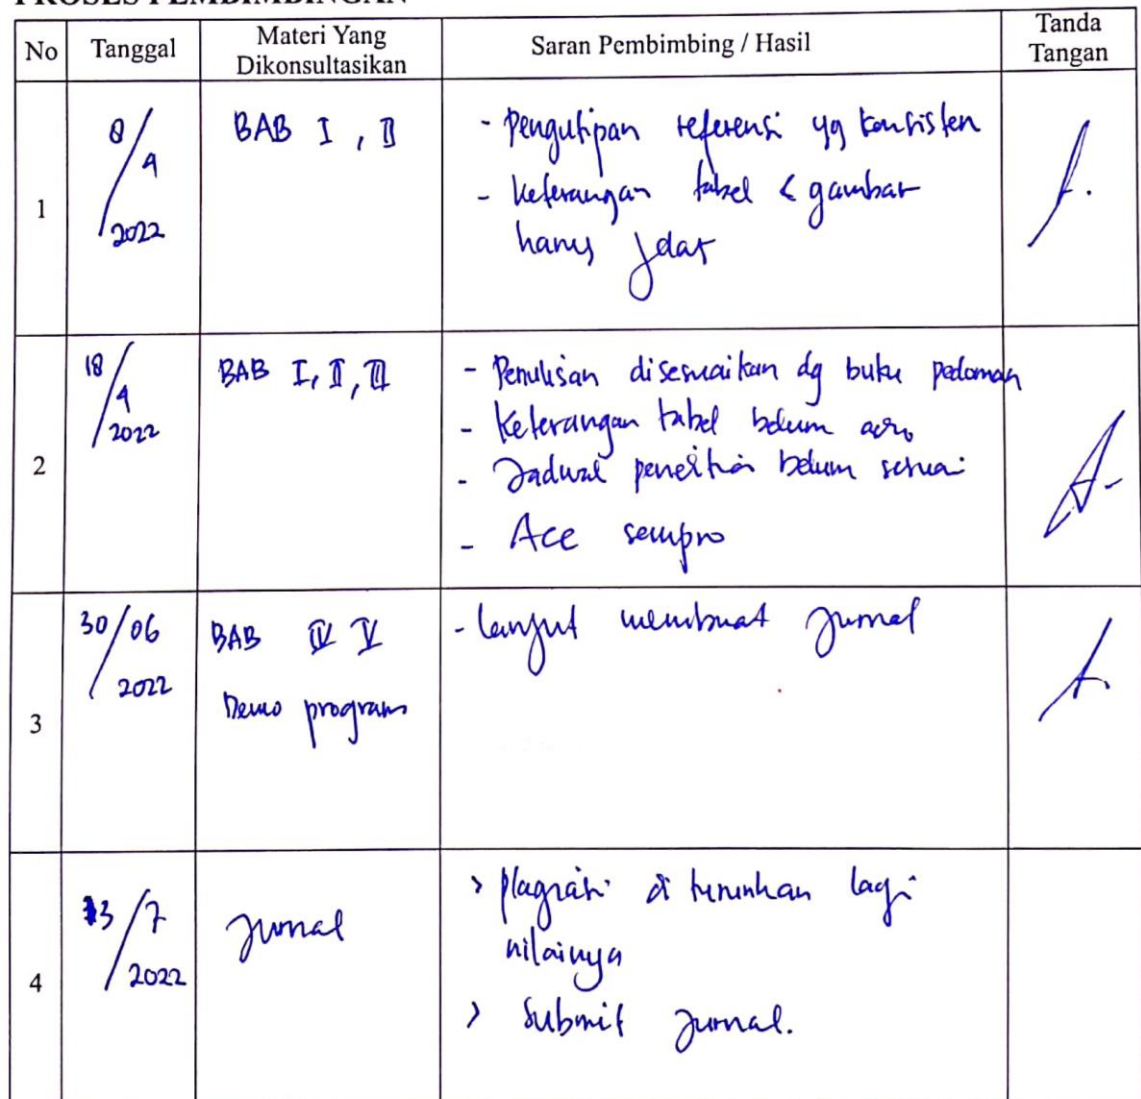 PROSES PEMBIMBINGAN
No Tanggal Materi Yang Dikonsultasikan Saran Pembimbing / Hasil Tanda Tangan
1
8/4/2022
BAB I, II
- Pengutipan referensi yg konsisten
- Keterangan tabel & gambar
harus jelas
2
18/4/2022
BAB I, II, III
- Penulisan disesuaikan dg buku pedoman
- Keterangan tabel belum
- Jadwal penelitian belum sesuai
- Acc sempro
3
30/06/2022
BAB IV V
Demo program
- lanjut membuat jurnal
4
13/7/2022
Jurnal
> plagiasi diturunkan lagi
nilainya
> Submit jurnal.